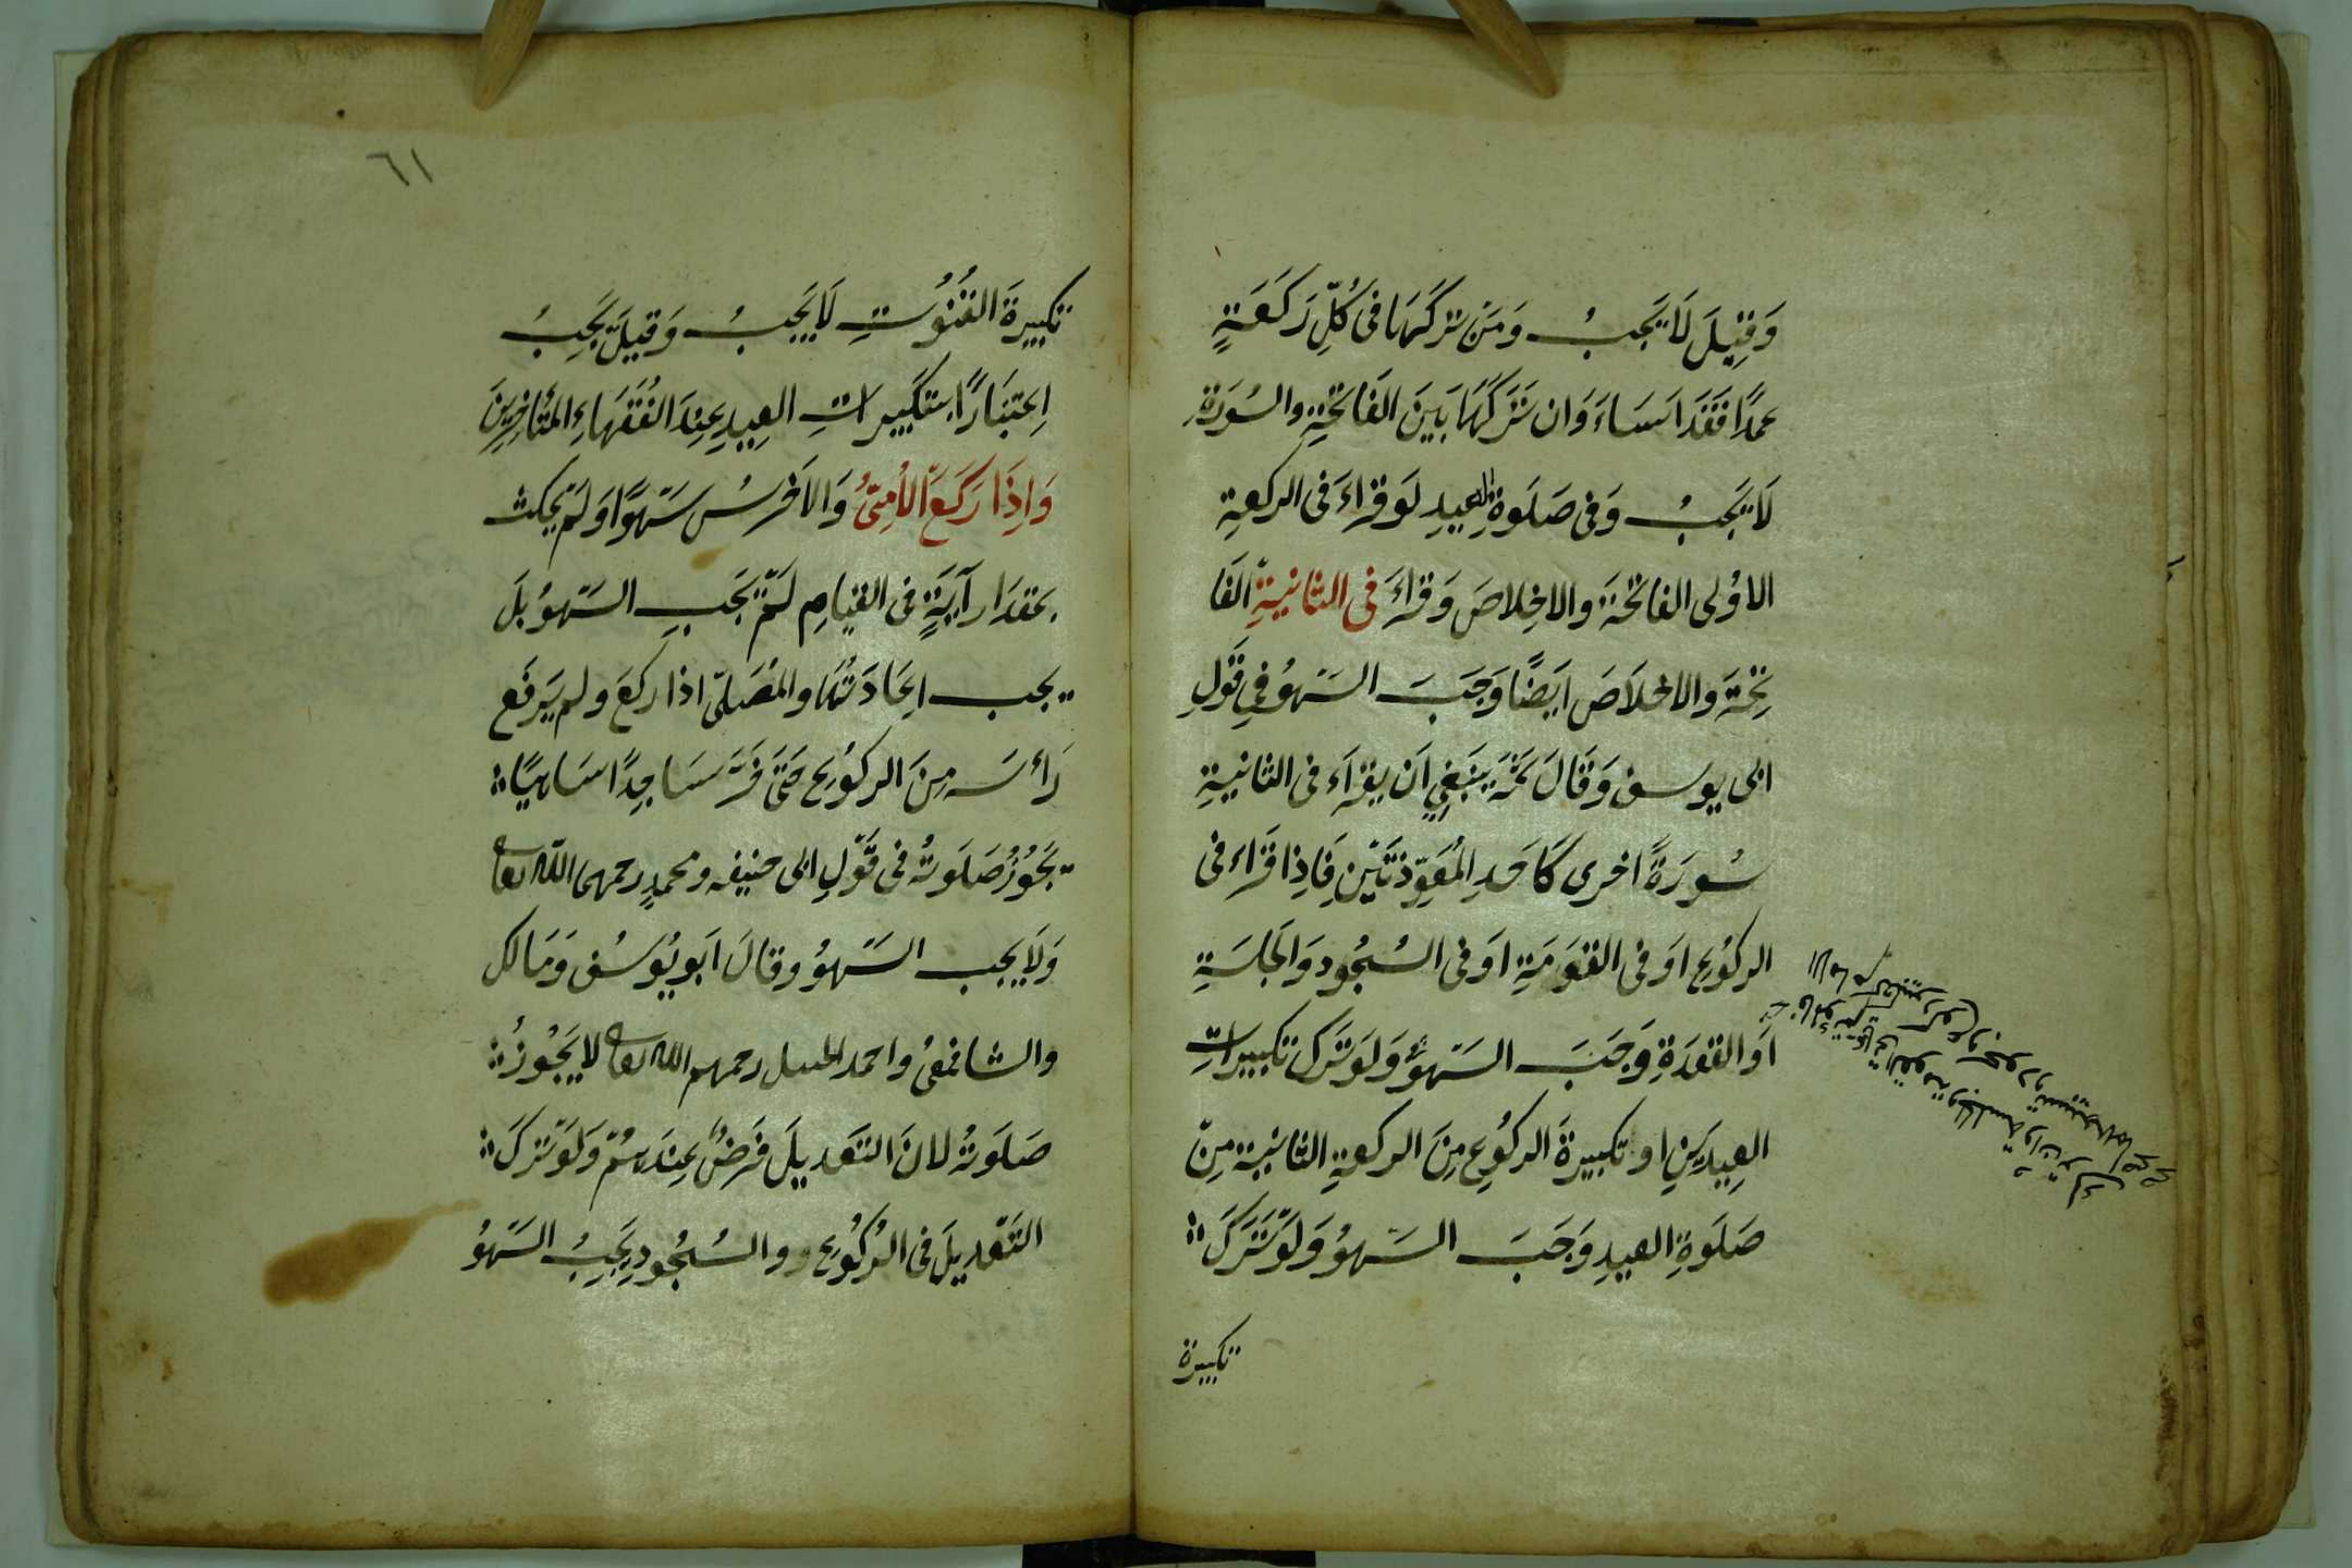 وَقِيلَ لَا يَجِبُ وَمَنْ تَرَكَهَا فِى كُلِّ رَكْعَةٍ
عَمْدًا فَقَدْ اَسَاءَ وَاِنْ تَرَكَهَا بَيْنَ الْفَاتِحَةِ والسُورَةِ
لَا يَجِبُ وَفِى صَلَوةِ العيدِ لَوْ قَرَاءَ فى الركعةِ
الاُولى الفاتحَةَ والاِخلاصَ وَقَراءَ فى الثانِيَةِ الْفَا
تِحَةَ والاخلَاصَ اَيْضًا وَجَبَ السَهوُ فِى قَوْلِ
ابى يوسف وَقَالَ مُحَمَّد يَنْبَغِى اَنْ يقرَاءَ فى الثانيةِ
سُورَةً اخرى كَاَحَدِ الْمُعَوِّذَتَيْنِ فَاِذا قَرَاء فى
الركُوعِ اَوْ فى القَوْمَةِ اَوْ فى السُجُودِ وَالْجَلْسَةِ
اَوِ القعْدَةِ وَجَبَ السَّهْوُ وَلَوْ تَرَكَ تكبيراتِ
العِيدَيْنِ او تكبيرةَ الركُوعِ مِنَ الركعةِ الثانيةِ مِنْ
صَلَوةِ العيدِ وَجَبَ السَهوُ وَلَوْ تَرَكَ
تكبيرة
٦١
تكبيرةَ القُنُوتِ لَا يَجِبُ وَقِيلَ يَجِبُ
اِعْتِبَارًا بِتَكْبِيرَاتِ العِيدِ عِنْدَ الفُقَهَاءِ المتأخرينَ
وَاِذَا رَكَعَ الْاُمِّىُّ وَالْاَخْرَسُ سَهْوًا وَلَمْ يَمكث
بمقدَارِ آيَةٍ فى القيامِ لَمْ يَجِبِ السَّهوُ بَلْ
يجب اِعَادَتُهَا والمُصَلّى اذا ركَعَ ولم يَرْفَعْ
رَاْسَه مِنَ الركُوعِ حَتّى خَرَّ سَاجِدًا سَاهيًا
يَجُوزُ صَلَوتُهُ فى قَوْلِ ابى حنيفه ومحمدٍ رحمهما الله تعا
وَلَا يجب السَّهوُ وقالَ اَبو يُوسُف وَمَالك
والشافعىُ واحمد الحنبل رحمهم الله تعا لا يَجُوزُ
صَلَوتُهُ لانَ التَعديلَ فَرضٌ عِنْدَهُمْ وَلَوْ تَرَكَ
التَّعْديلَ فى الرُكُوعِ و والسُجُودِ يَجِبُ السَّهوُ